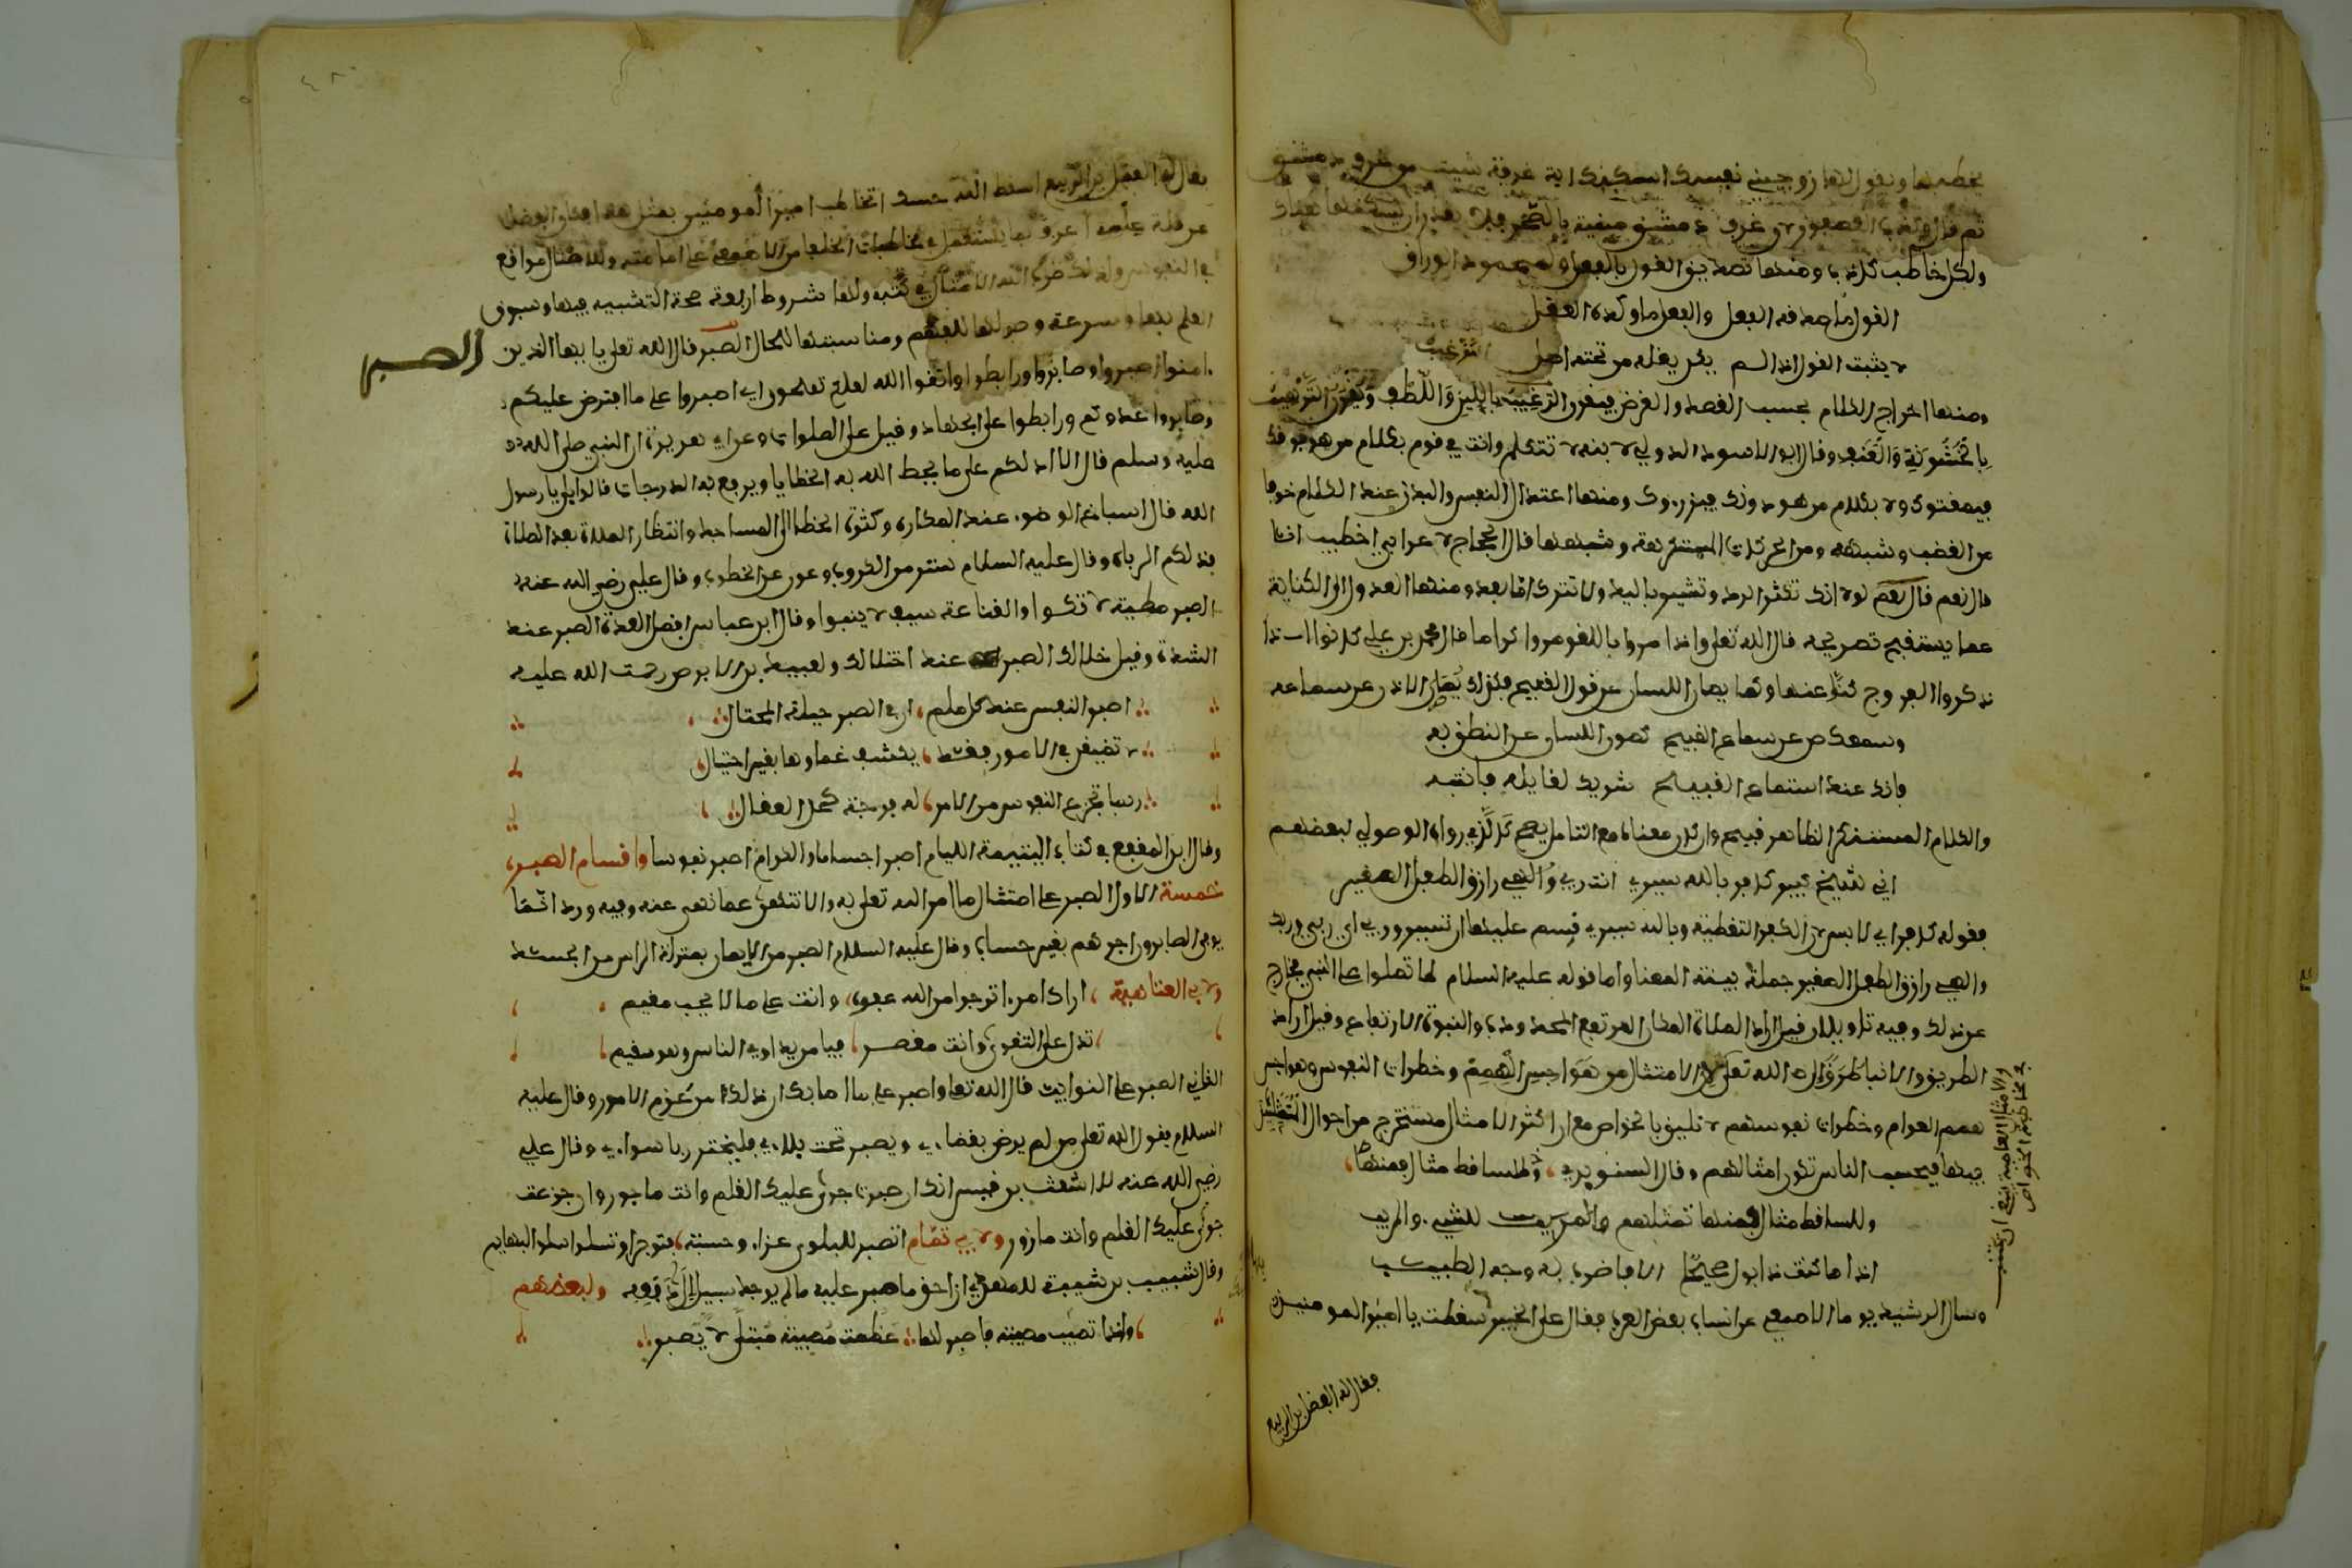 يخطبها ويقول لها زوجيني نفسك اسكنك اية غرفة شيت من غرف دمشق
ثم قال
ولكل خاطب كلاب ومنها تصديق القول بالفعل ولمحمود الوراق
القول ما صدقه الفعل والفعل ما وكده العقل
لا يثبت القول اذا لم يكن يقله من تحته اصل الترغيب
ومنها اخراج الكلام بحسب القصد والغرض فيقرن الترغيب باللين واللطف ويقرن الترهيب
بالخشونة والعنف وقال ابو الاسود الدولي لابنه لا تتكلم وانت في قوم بكلام من هو فوقك
فيمقتوك ولا بكلام من هو دونك فيزروك ومنها اعتدال النفس والبدن عند الكلام خوفا
من الغضب وشبهه ومن الحركات المستكرهة وشبهها قال الحجاج لاعرابي اخطيب انا
قال نعم قال نعم لولا انك تكثر الرد وتشير باليد ولا تترك اما بعد ومنها العدول الى الكناية
عما يستقبح تصريحه قال الله تعلى واذا مروا باللغو مروا كراما قال محمد بن علي كانوا اذا
ذكروا الفروج كنوا عنها وكما يصان اللسان عن قول القبيح فكذلك يصان الاذن عن سماعه
وسمعك صن عن سماع القبيح كصون اللسان عن النطق به
فانك عند استماع القبيح شريك لقايله فانتبه
والكلام المستنكر الظاهر قبيح وان كان معناه مع التأمل يصح كالذي رواه الوصولي لبعضهم
اني شيخ كبير كافر بالله سيري انت ربي والهي رازق الطفل الصغير
فقوله كافر اي لابس لان الكفر التغطية وبالله سيري قسم عليها ان تسير وربي اي ربي وربك
والهي رازق الطفل الصغير جملة بينة المعنا واما قوله عليه السلام لا تصلوا على النبي فخارج
عن ذلك وفيه تاويلان قيل اراد الصلاة المكان المرتفع المحدودب والنبوة الارتفاع وقيل اراد
الطريق والانبيا طرق الى الله تعلى الامتثال من هواجس الهمم وخطرات النفوس وهواجس
همم العوام وخطرات نفوسهم لا تليق بالخواص مع ان اكثر الامثال مستخرج من احوال المتماثل
بينها فبحسب الناس تكون امثالهم وقال السنوبري وللساقط مثال فمنها
وللساقط مثال فمنها تمثلهم والمريب للشيء والمريب
اذا ما كنت ذا بول صحيح الا فاضرب به وجه الطبيب
وسال الرشيد يوما الاصمعي عن انساب بعض العرب فقال على الخبير سقطت يا امير المومنين
فقال له الفضل بن الربيع
والامثال العامية ينبغي ان تجتنب
في مخاطبة الخواص
فقال له الفضل بن الربيع اسقط الله جنبك اتخاطب امير المومنين بمثل هذا فكان الفضل
مع قلة علمه اعرف بما يستعمل في مخاطبات الخلفا من الاصمعي على امامته وللامثال مواقع
في النفوس ولذلك ضرب الله الامثال في كتبه ولها شروط اربعة صحة التشبيه بينها وسبوق
العلم بها وسرعة وصولها للفهم ومناسبتها للحال الصبر قال الله تعلى يا ايها الذين
الصبر
امنوا اصبروا وصابروا ورابطوا واتقوا الله لعلكم تفلحون اي اصبروا على ما افترض عليكم
وصابروا عدوكم ورابطوا على الجهاد وقيل على الصلوات وعن ابي هريرة ان النبي صلى الله
عليه وسلم قال الا ادلكم على ما يحط الله به الخطايا ويرفع به الدرجات قالوا بلى يا رسول
الله قال اسباغ الوضوء عند المكاره وكثرة الخطا الى المساجد وانتظار الصلاة بعد الصلاة
فذلكم الرباط وقال عليه السلام الصبر ستر من الكروب وعون على الخطوب وقال علي رضي الله عنه
الصبر مطية لا تكبوا والقناعة سيف لا ينبوا وقال ابن عباس افضل العدة الصبر عند
الشدة وقيل خلالك الصبر عند اختلالك ولعبيد بن الابرص رحمت الله عليه
اصبر النفس عند كل ملم ان في الصبر حيلة المحتال
لا تضيقن في الامور فقد يكشف غماوها بغير احتيال
ربما تجزع النفوس من الامر له فرجة كحل العقال
وقال ابن المقفع في كتاب اليتيمة الليام اصبر اجساما والكرام اصبر نفوسا واقسام الصبر
خمسة الاول الصبر على امتثال ما امر الله تعلى به والانتهى عما نهى عنه وفيه ورد انما
يوفى الصابرون اجرهم بغير حساب وقال عليه السلام الصبر من الايمان بمنزلة الراس من الجسد
ولابي العتاهية اراك امرا ترجوا من الله عفوه وانت على ما لا يحب مقيم
تدل على التقوى وانت مقصر فيا من يداوي الناس وهو سقيم
الثاني الصبر على النوايب قال الله تعلى واصبر على ما اصابك ان ذلك من عزم الامور وقال عليه
السلام يقول الله تعلى من لم يرض بقضاءي ويصبر تحت بلاءي فليختر ربا سواءي وقال علي
رضي الله عنه للاشعث بن قيس انك ان صبرت جرى عليك القلم وانت ماجور وان جزعت
جرى عليك القلم وانت مازور ولابي تمام اتصبر للبلوى عزاء وحسبة فتوجر او تسلوا سلو البهايم
وقال شبيب بن شيبة للمهدي ان احق ما صبر عليه ما لم يوجد سبيل الى دفعه ولبعضهم
واذا تصبك مصيبة فاصبر لها عظمت مصيبة مبتلى لا يصبر